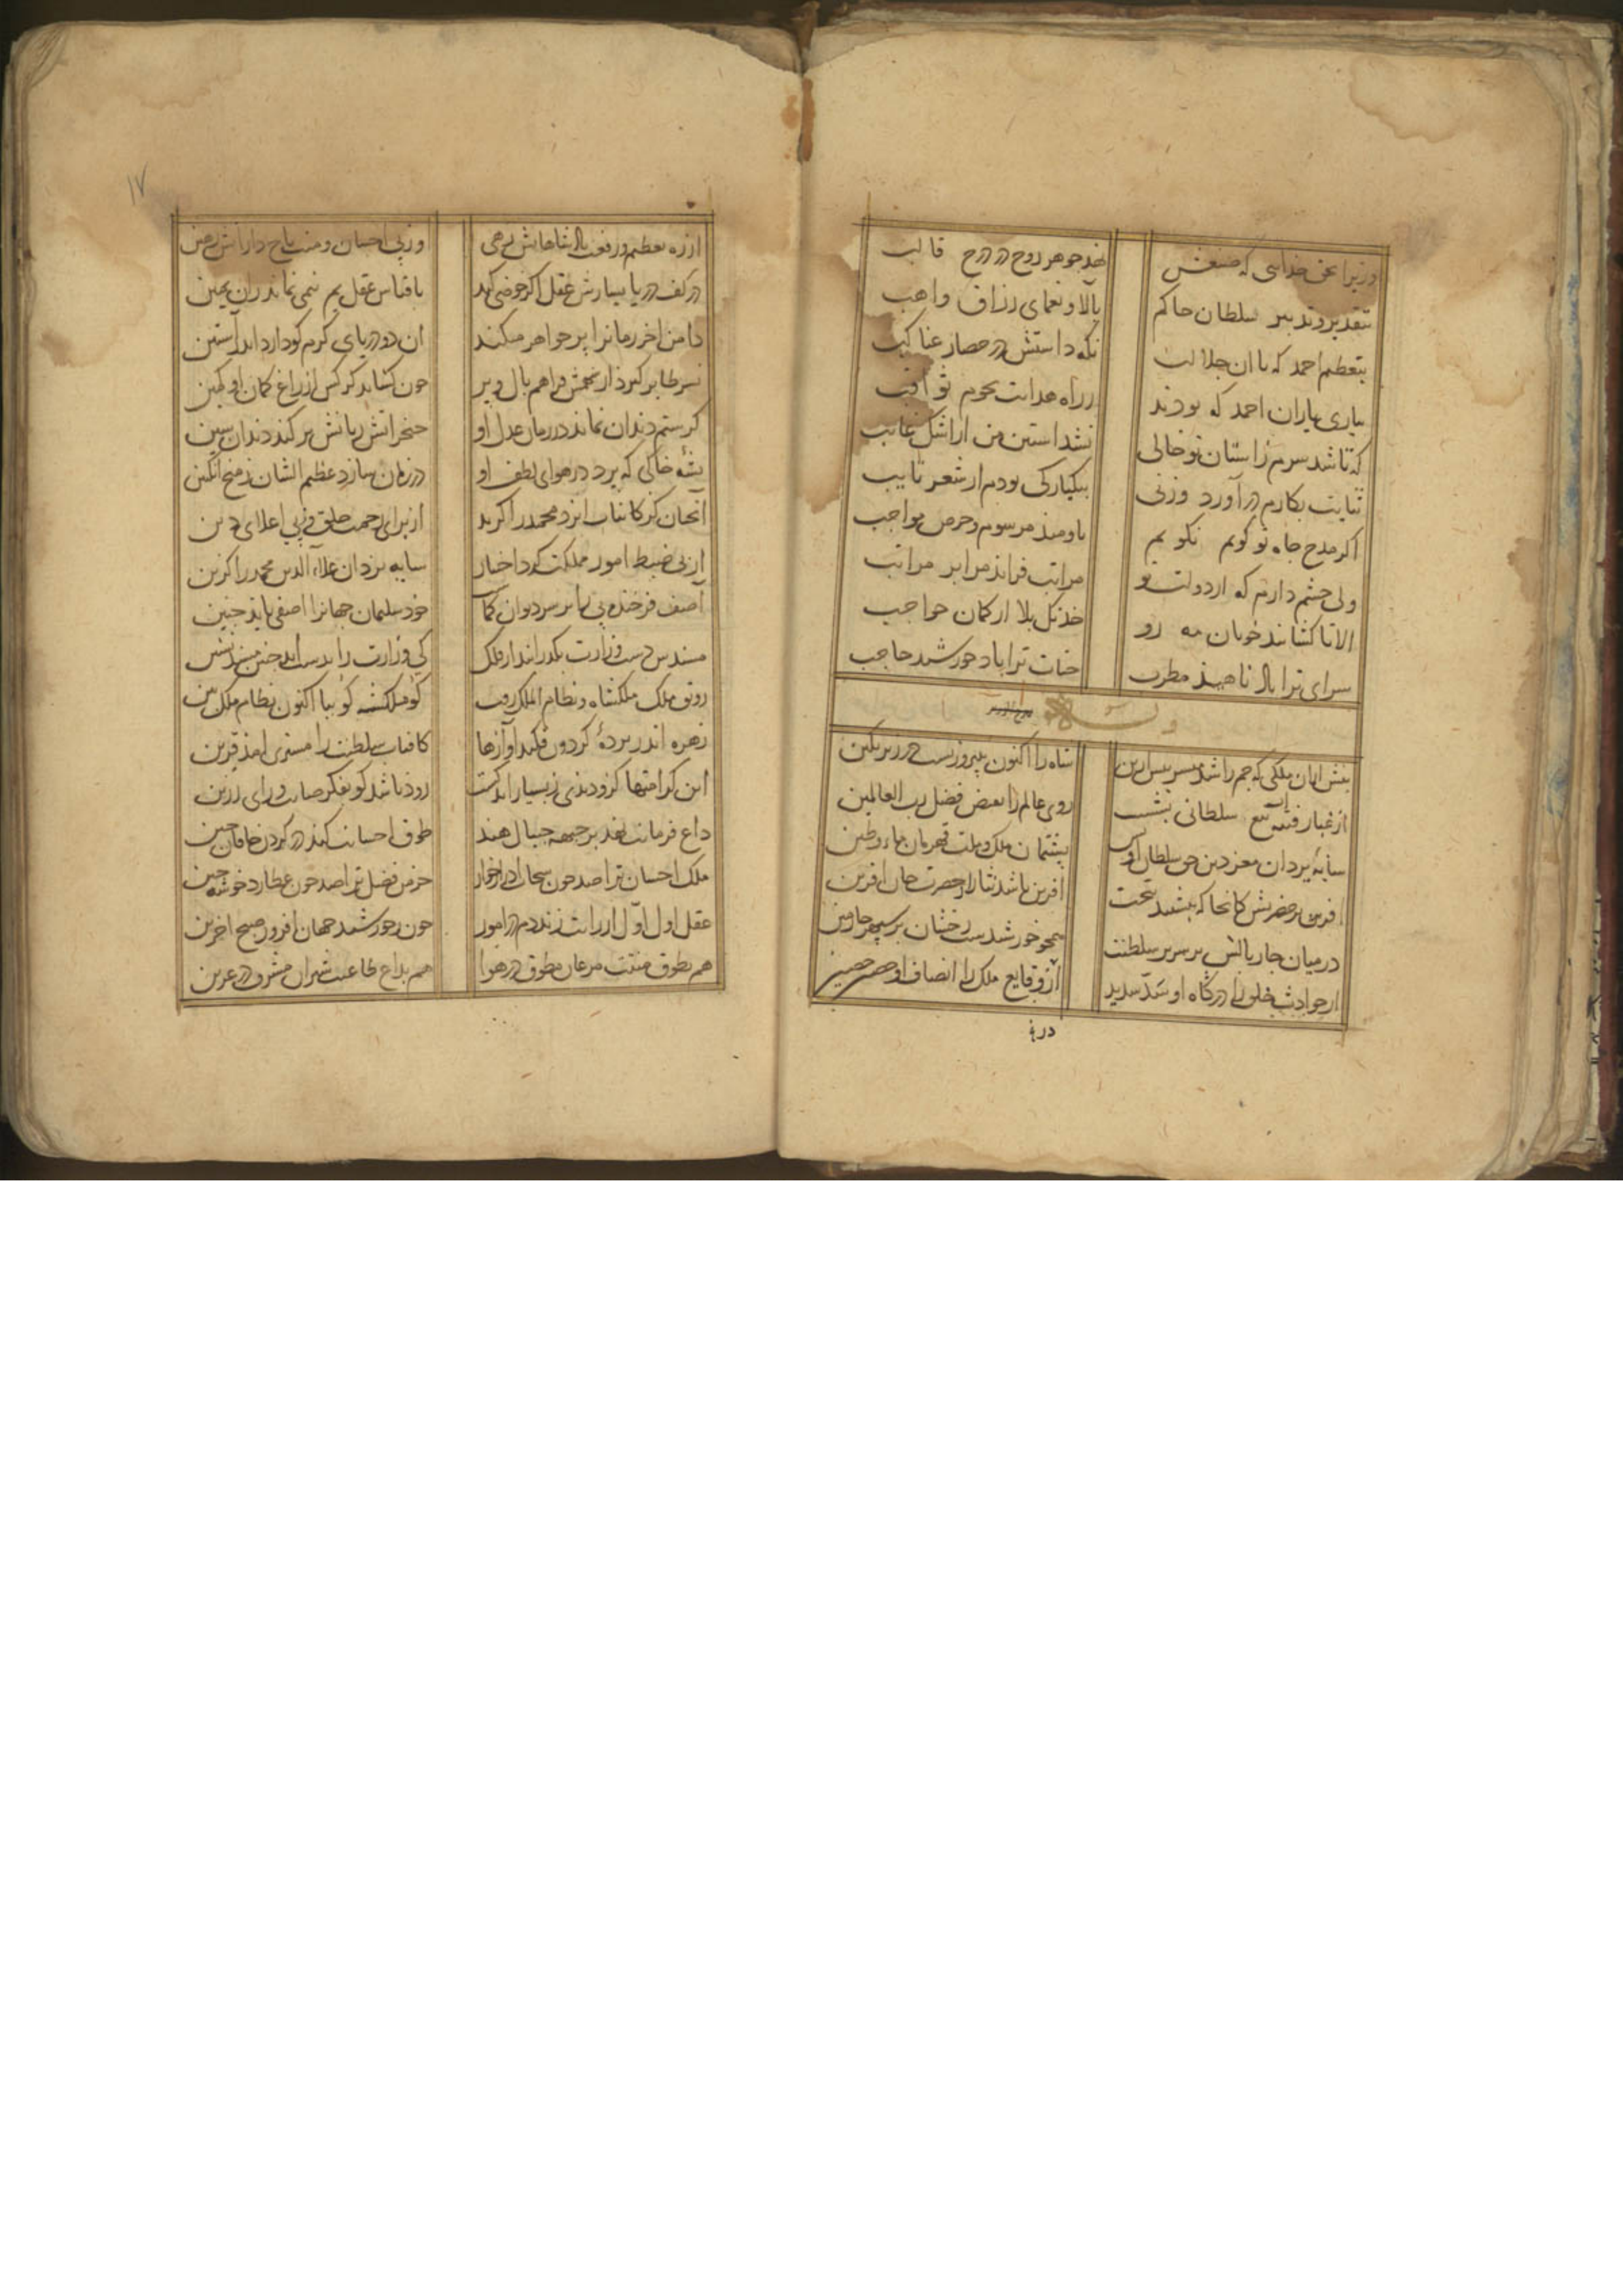 وزیرا بحق خدایی که صنعش نهد جوهر روح در درج قالب
بتقدیر و تدبیر سلطان حاکم بآلا و نعمای رزاق واهب
بتعظیم احمد که با ان جلالت نکه داشتش در حصار عناکب
بیاری یاران احمد که بودند در راه هدایت نجوم ثواقب
که تا شد سرم ز استان تو خالی نشد استین من از اشک غایب
ثنایت بکارم در آورد ورنی بیکبارکی بودم از شعر تایب
اکر مدح جاه تو کویم نکویم باومید مرسوم و حرص مواجب
ولی چشم دارم که از دولت تو مراتب فزاید مرا بر مراتب
الا تا کشایند خوبان مه رو خدنک بلا از کمان حواجب
سرای ترا باد ناهید مطرب جناب ترا باد خورشید حاجب
بیش ازان ملکی که جم را شد میسر پیش ازین شاه را اکنون بپیروزیست در زیر نکین
از غبار فتنه آب تیغ سلطانی بشست روی عالم را بعض فضل رب العالمین
سایه یزدان معز دین حق سلطان اویس پشتبان ملک و ملت قهرمان ماء و طین
افرین بر حضرتش کانجا که بنشیند بتخت افرین باشد نثار از حضرت جان افرین
درمیان چار بالش بر سریر سلطنت همچو خورشیدست رخشان بر سپهر چارمین
از حوادث خلق را درکاه او سدّ سدید از وقایع ملک را انصاف او حصن حصین
در ره
۱۷
از ره تعظیم و رفعت پادشاهانش رهی وز پی احسان و منت تاج دارانش رهین
در کف دریا یسارش عقل اکر خوضی کند با قیاس عقل یم نیمی نماید زان یمین
دامن اخر زمان را پر جواهر میکند ان دو دریای کرم کو دارد اندر آستین
نسر طایر کیرد از سهمش فراهم بال و پر چون کشاید کرکس از زاغ کمان او کمین
کر ستم دندان نماید در زمان عدل او خنجر اتش زبانش بر کند دندان سین
پشهٔ خاکی که پرد در هوای لطف او در زمان سازد عظیم الشان ز میخ انکبین
آنچنان کز کاینات ایزد محمد را کزید از برای رحمت خلق و ز پی اعلای دین
از پی ضبط امور مملکت کرد اختیار سایه یزدان علاء الدین محمد را کزین
آصف فرخنده پی را بر سر دیوان کماشت خود سلیمان جهانرا اصفی باید چنین
مسندس دست وزارت بکذرانید از فلک کی وزارت را بدست اید چنین مسند نشین
رونق ملک ملکشاه و نظام الملک رفت کو ملکشه کو بیا اکنون نظام ملک بین
زهره اندر پردهٔ کردون فکند آوازها کافتاب سلطنت را مشتری امد قرین
این کرامتها کزو دیدی ز بسیار اندکست زود باشد کو بفکر صایب و رای رزین
داغ فرمانت نهد بر جبهه جیپال هند طوق احسانت کند در کردن خاقان چین
ملک احسان ترا صد چون سحاب ادرار خوار خرمن فضل ترا صد چون عطارد خوشه چین
عقل اول اوّل از رایت زند دم در امور چون ز خورشید جهان افروز صبح اخرین
هم بطوق منتت مرغان مطوق در هوا هم بداغ طاعتت شیران مشرف در عرین